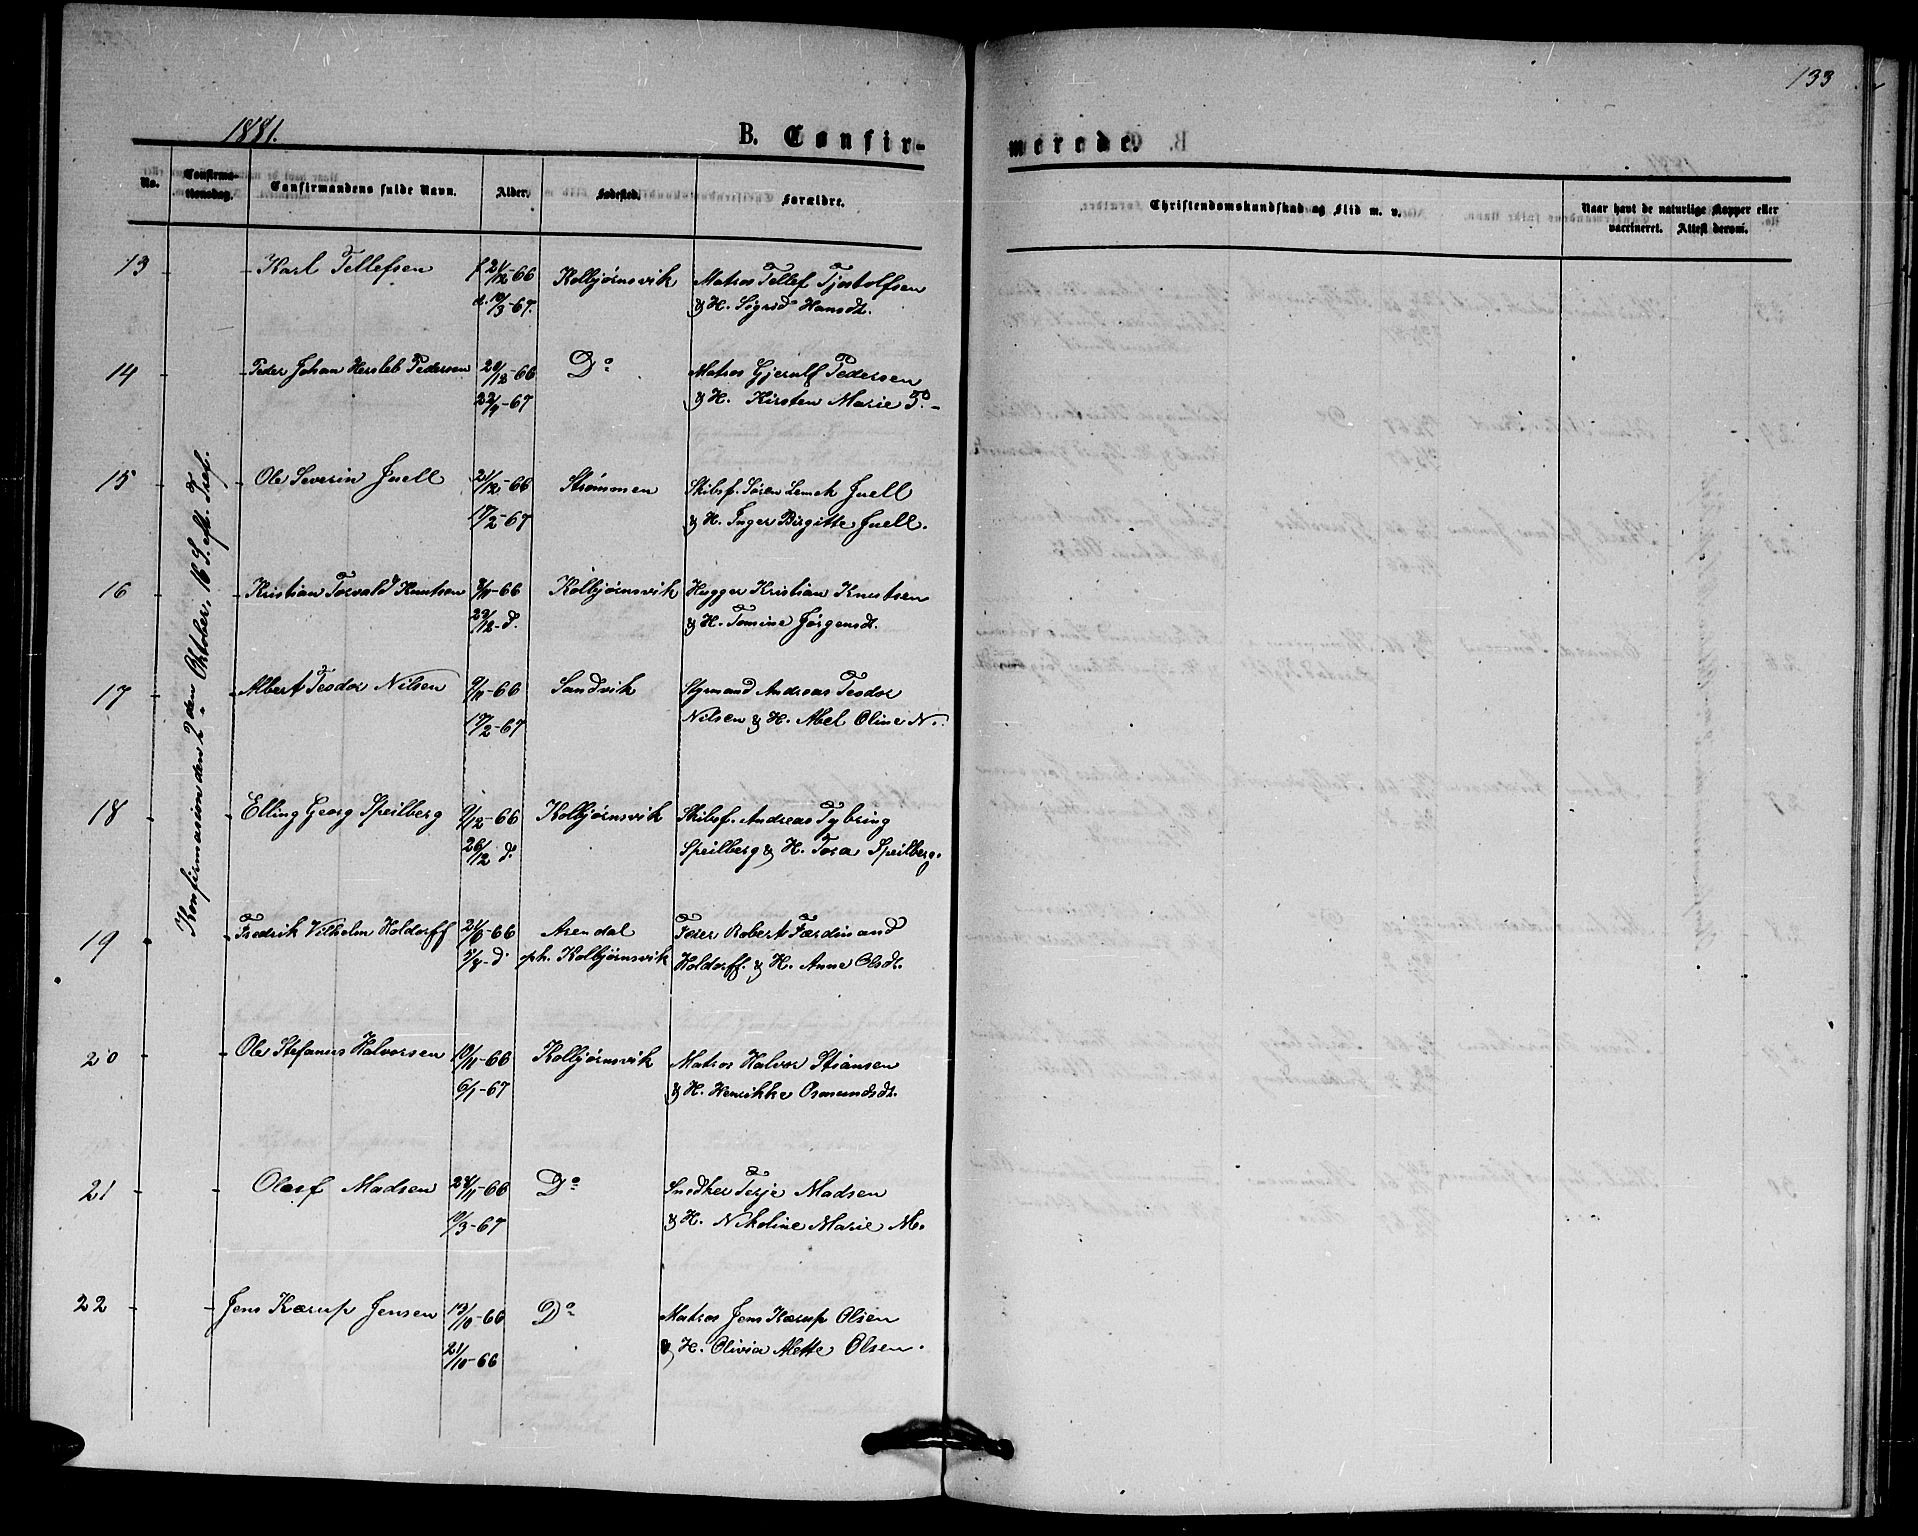 133
1881.
B. Confir-
merede.
No.
Confirma-
tionsdag.
Confirmandens fulde Navn.
Alder.
Fødested.
Forældre.
Christendomskundskab og Flid m. v.
Naar havt de naturlige Kopper eller
vaccineret. Attest derom.
Konfirmasjonsdens 2den Oktober, 16 S. eft. Tref.
13 Karl Tellefsen f 21/12-66 Kolbjørnsvik Matros Tellef Tjostolfsen
d. 10/3-67. & H. Sigrid Hansdt.
14 Peder Johan Hersleb Pedersen 20/12-66 Do Matros Gjerulf Pedersen
22/4-67 & H. Kirsten Marie P.-
15 Ole Severin Juell 21/12-66 Strømmen Skibsf. Søren Lemek Juell
17/2-67 & H. Inger Birgitte Juell.
16 Kristian Torvald Knutsen 8/11-66 Kolbjørnsvik Hugger Kristian Knutsen
29/12-d. & H. Tomine Jørgensdt.
17 Albert Teodor Nilsen 9/11-66 Sandvik Styrmand Andreas Teodor
17/2-67 Nilsen & H. Abel Oline N.
18 Elling Georg Speilberg 9/12-66 Kolbjørnsvik Skibsf. Andreas Tybring
26/12 d. Speilberg & H. Tora Speilberg.
19 Fredrik Vilhelm Holdorff 21/6-66 Arendal Feier Robert Færdinand
5/8-d oph. Kolbjørnsvik Holdorff. & H. Anne Olsdt.
20 Ole Stefanus Halvorsen 10/11-66 Kolbjørnsvik Matros Halvor Stiansen
6/1-67 & H. Henrikke Osmundsdt.
21 Olaf Madsen 28/11-66 Do Snedker Terje Madsen
10/3-67 & H. Nikoline Marie M.
22 Jens Kærup Jensen 13/10-66 Do Matros Jens Kærup Olsen
21/10-66 & H. Olivia Mette Olsen.